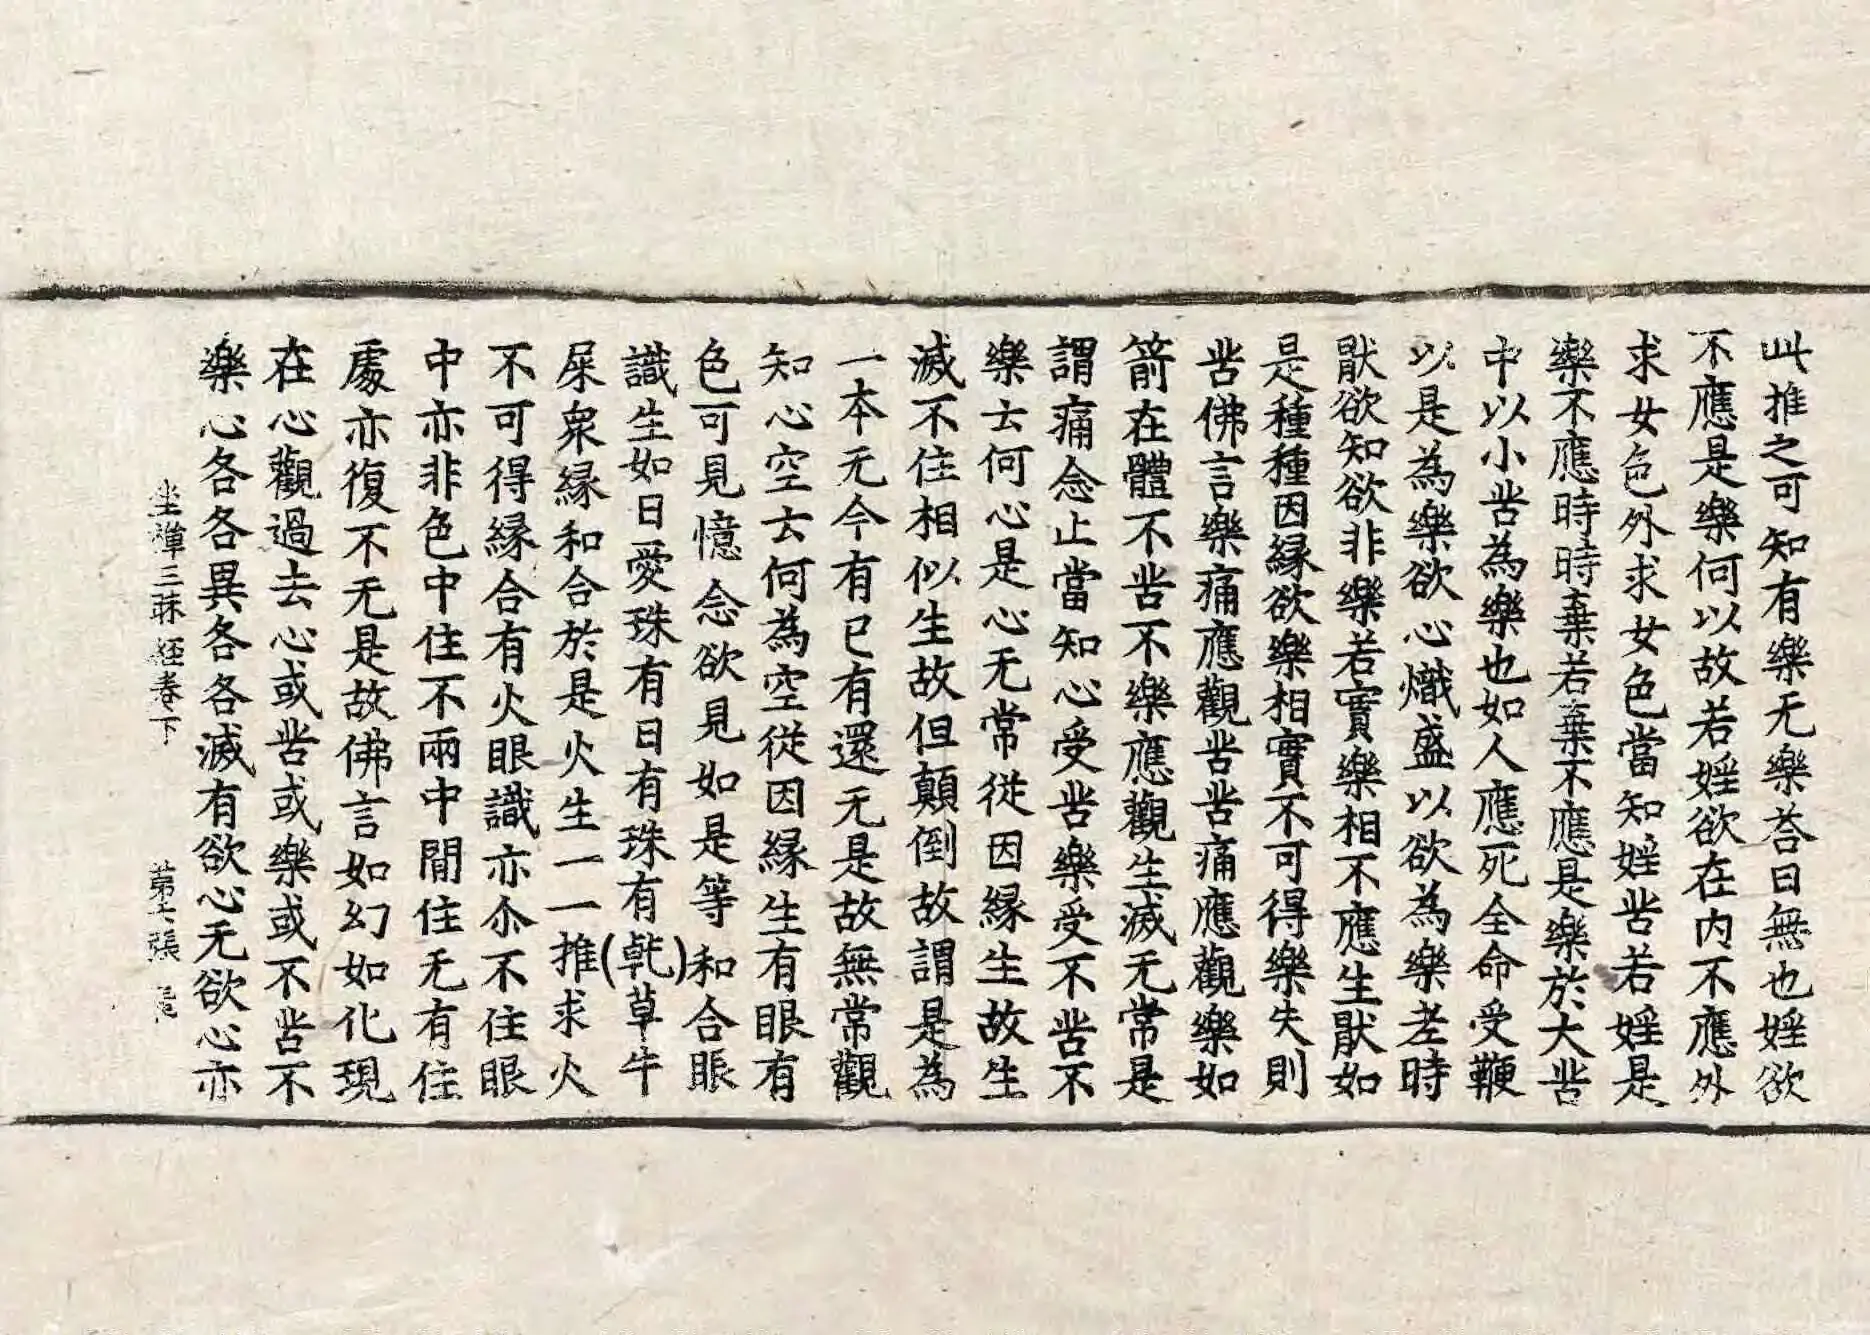 此推之可知有樂无樂荅曰無也婬欲
不應是樂何以故若婬欲在内不應外
求女色外求女色當知婬苦若婬是
樂不應時時棄若棄不應是樂於大苦
中以小苦為樂也如人應死全命受鞭
以是為樂欲心熾盛以欲為樂老時
猒欲知欲非樂若實樂相不應生猒如
是種種因緣欲樂相實不可得樂失則
苦佛言樂痛應觀苦苦痛應觀樂如
箭在體不苦不樂應觀生滅无常是
謂痛念止當知心受苦樂受不苦不
樂云何心是心无常從因緣生故生
滅不住相似生故但顛倒故謂是為
一本无今有已有還无是故無常觀
知心空云何為空從因緣生有眼有
色可見憶念欲見如是等和合眼
識生如日愛珠有日有珠有(乾)草牛
屎衆緣和合於是火生一一推求火
不可得緣合有火眼識亦尒不住眼
中亦非色中住不兩中間住无有住
處亦復不无是故佛言如幻如化現
在心觀過去心或苦或樂或不苦不
樂心各各異各各滅有欲心无欲心亦
坐禪三昧經卷下 第六張